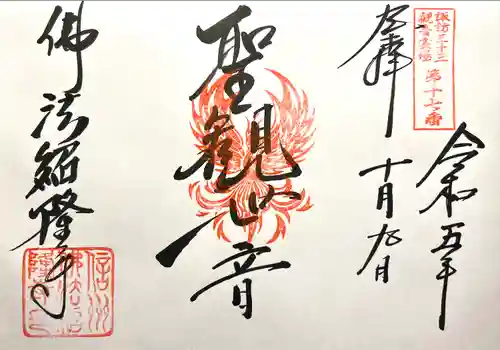 諏訪三十三
観音霊場
第十七番
令和五年
奉拝
十月九日
聖観世音
佛法紹隆寺
信州
佛法紹
隆寺